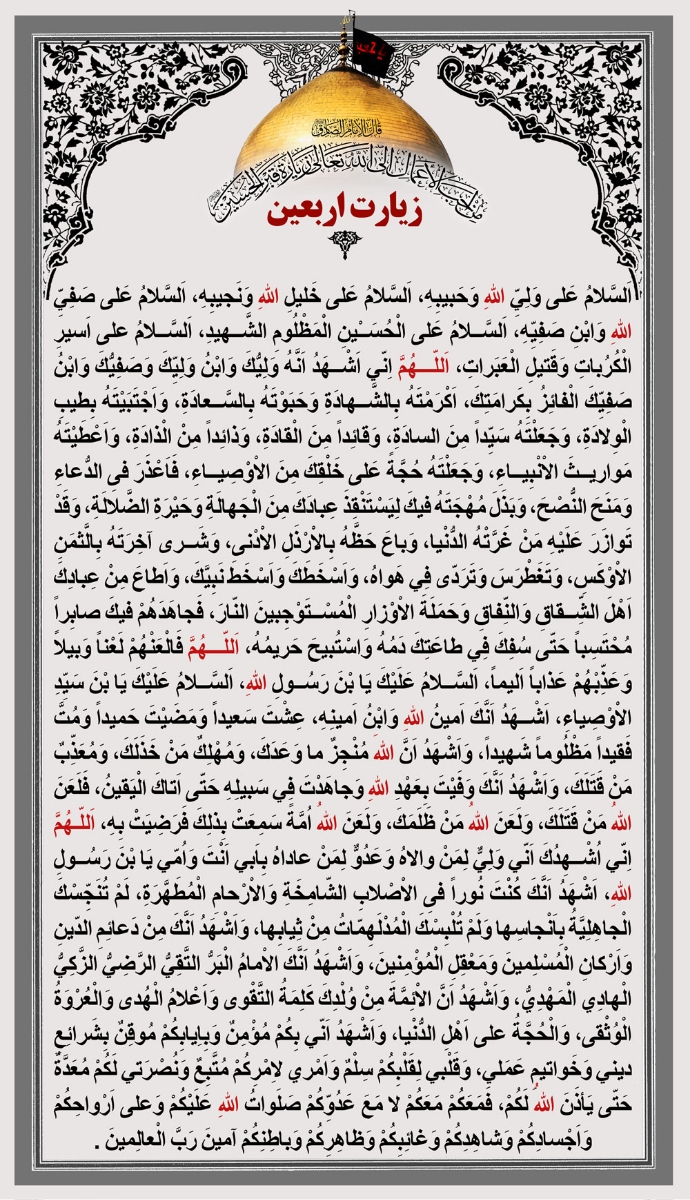 قال الإمام الصادق
من أحب الأعمال إلى الله تعالى زيارة قبر الحسين
زیارت اربعین
اَلسَّلامُ عَلى وَلِيِّ اللهِ وَحَبيبِهِ، اَلسَّلامُ عَلى خَليلِ اللهِ وَنَجيبِهِ، اَلسَّلامُ عَلى صَفِيِّ
اللهِ وَابْنِ صَفيِّهِ، اَلسَّلامُ عَلى الْحُسَيْنِ الْمَظْلُومِ الشَّهيدِ، اَلسَّلامُ على اَسيرِ
الْكُرُباتِ وَقَتيلِ الْعَبَراتِ، اَللّهُمَّ اِنّي اَشْهَدُ اَنَّهُ وَلِيُّكَ وَابْنُ وَلِيِّكَ وَصَفِيُّكَ وَابْنُ
صَفِيِّكَ الْفائِزُ بِكَرامَتِكَ، اَكْرَمْتَهُ بِالشَّهادَةِ وَحَبَوْتَهُ بِالسَّعادَةِ، وَاَجْتَبَيْتَهُ بِطيبِ
الْوِلادَةِ، وَجَعَلْتَهُ سَيِّداً مِنَ السادَةِ، وَقائِداً مِنَ الْقادَةِ، وَذائِداً مِنْ الْذادَةِ، وَاَعْطَيْتَهُ
مَواريثَ الاَْنْبِياءِ، وَجَعَلْتَهُ حُجَّةً عَلى خَلْقِكَ مِنَ الاَْوْصِياءِ، فَاَعْذَرَ فى الدُّعاءِ
وَمَنَحَ النُّصْحَ، وَبَذَلَ مُهْجَتَهُ فيكَ لِيَسْتَنْقِذَ عِبادَكَ مِنَ الْجَهالَةِ وَحَيْرَةِ الضَّلالَةِ، وَقَدْ
تَوازَرَ عَلَيْهِ مَنْ غَرَّتْهُ الدُّنْيا، وَباعَ حَظَّهُ بِالاَْرْذَلِ الاَْدْنى، وَشَرى آخِرَتَهُ بِالَّثمَنِ
الاَْوْكَسِ، وَتَغَطْرَسَ وَتَرَدّى فِي هَواهُ، وَاَسْخَطَكَ وَاَسْخَطَ نَبِيَّكَ، وَاَطاعَ مِنْ عِبادِكَ
اَهْلَ الشِّقاقِ وَالنِّفاقِ وَحَمَلَةَ الاَْوْزارِ الْمُسْتَوْجِبينَ النّارَ، فَجاهَدَهُمْ فيكَ صابِراً
مُحْتَسِباً حَتّى سُفِكَ فِي طاعَتِكَ دَمُهُ وَاسْتُبيحَ حَريمُهُ، اَللّهُمَّ فَالْعَنْهُمْ لَعْناً وَبيلاً
وَعَذِّبْهُمْ عَذاباً اَليماً، اَلسَّلامُ عَلَيْكَ يَا بْنَ رَسُولِ اللهِ، اَلسَّلامُ عَلَيْكَ يَا بْنَ سَيِّدِ
الاَْوْصِياءِ، اَشْهَدُ اَنَّكَ اَمينُ اللهِ وَابْنُ اَمينِهِ، عِشْتَ سَعيداً وَمَضَيْتَ حَميداً وَمُتَّ
فَقيداً مَظْلُوماً شَهيداً، وَاَشْهَدُ اَنَّ اللهَ مُنْجِزٌ ما وَعَدَكَ، وَمُهْلِكٌ مَنْ خَذَلَكَ، وَمُعَذِّبٌ
مَنْ قَتَلَكَ، وَاَشْهَدُ اَنَّكَ وَفَيْتَ بِعَهْدِ اللهِ وَجاهَدْتَ فِي سَبيلِهِ حَتّى اَتاكَ الْيَقينُ، فَلَعَنَ
اللهُ مَنْ قَتَلَكَ، وَلَعَنَ اللهُ مَنْ ظَلَمَكَ، وَلَعَنَ اللهُ اُمَّةً سَمِعَتْ بِذلِكَ فَرَضِيَتْ بِهِ، اَللّهُمَّ
اِنّي اُشْهِدُكَ اَنّي وَلِيٌّ لِمَنْ والاهُ وَعَدُوٌّ لِمَنْ عاداهُ بِاَبي اَنْتَ وَاُمّي يَا بْنَ رَسُولِ
اللهِ، اَشْهَدُ اَنَّكَ كُنْتَ نُوراً فى الاَْصْلابِ الشّامِخَةِ وَالاَْرْحامِ الْمُطَهَّرَةِ، لَمْ تُنَجِّسْكَ
الْجاهِلِيَّةُ بِاَنْجاسِها وَلَمْ تُلْبِسْكَ الْمُدْلَهِمّاتُ مِنْ ثِيابِها، وَاَشْهَدُ اَنَّكَ مِنْ دَعائِمِ الدّينِ
وَاَرْكانِ الْمُسْلِمينَ وَمَعْقِلِ الْمُؤْمِنينَ، وَاَشْهَدُ اَنَّكَ الاِْمامُ الْبَرُّ التَّقِيُّ الرَّضِيُّ الزَّكِيُّ
الْهادِي الْمَهْدِيُّ، وَاَشْهَدُ اَنَّ الاَْئِمَّةَ مِنْ وُلْدِكَ كَلِمَةُ التَّقْوى وَاَعْلامُ الْهُدى وَالْعُرْوَةُ
الْوُثْقى، وَالْحُجَّةُ على اَهْلِ الدُّنْيا، وَاَشْهَدُ اَنّي بِكُمْ مُؤْمِنٌ وَبِاِيابِكُمْ مُوقِنٌ بِشَرائِعِ
ديني وَخَواتيمِ عَمَلي، وَقَلْبي لِقَلْبِكُمْ سِلْمٌ وَاَمْري لاَِمْرِكُمْ مُتَّبِعٌ وَنُصْرَتي لَكُمْ مُعَدَّةٌ
حَتّى يَأذَنَ اللهُ لَكُمْ، فَمَعَكُمْ مَعَكُمْ لا مَعَ عَدُوِّكُمْ صَلَواتُ اللهِ عَلَيْكُمْ وَعلى اَرْواحِكُمْ
وَاَجْسادِكُمْ وَشاهِدِكُمْ وَغائِبِكُمْ وَظاهِرِكُمْ وَباطِنِكُمْ آمينَ رَبَّ الْعالِمينَ .